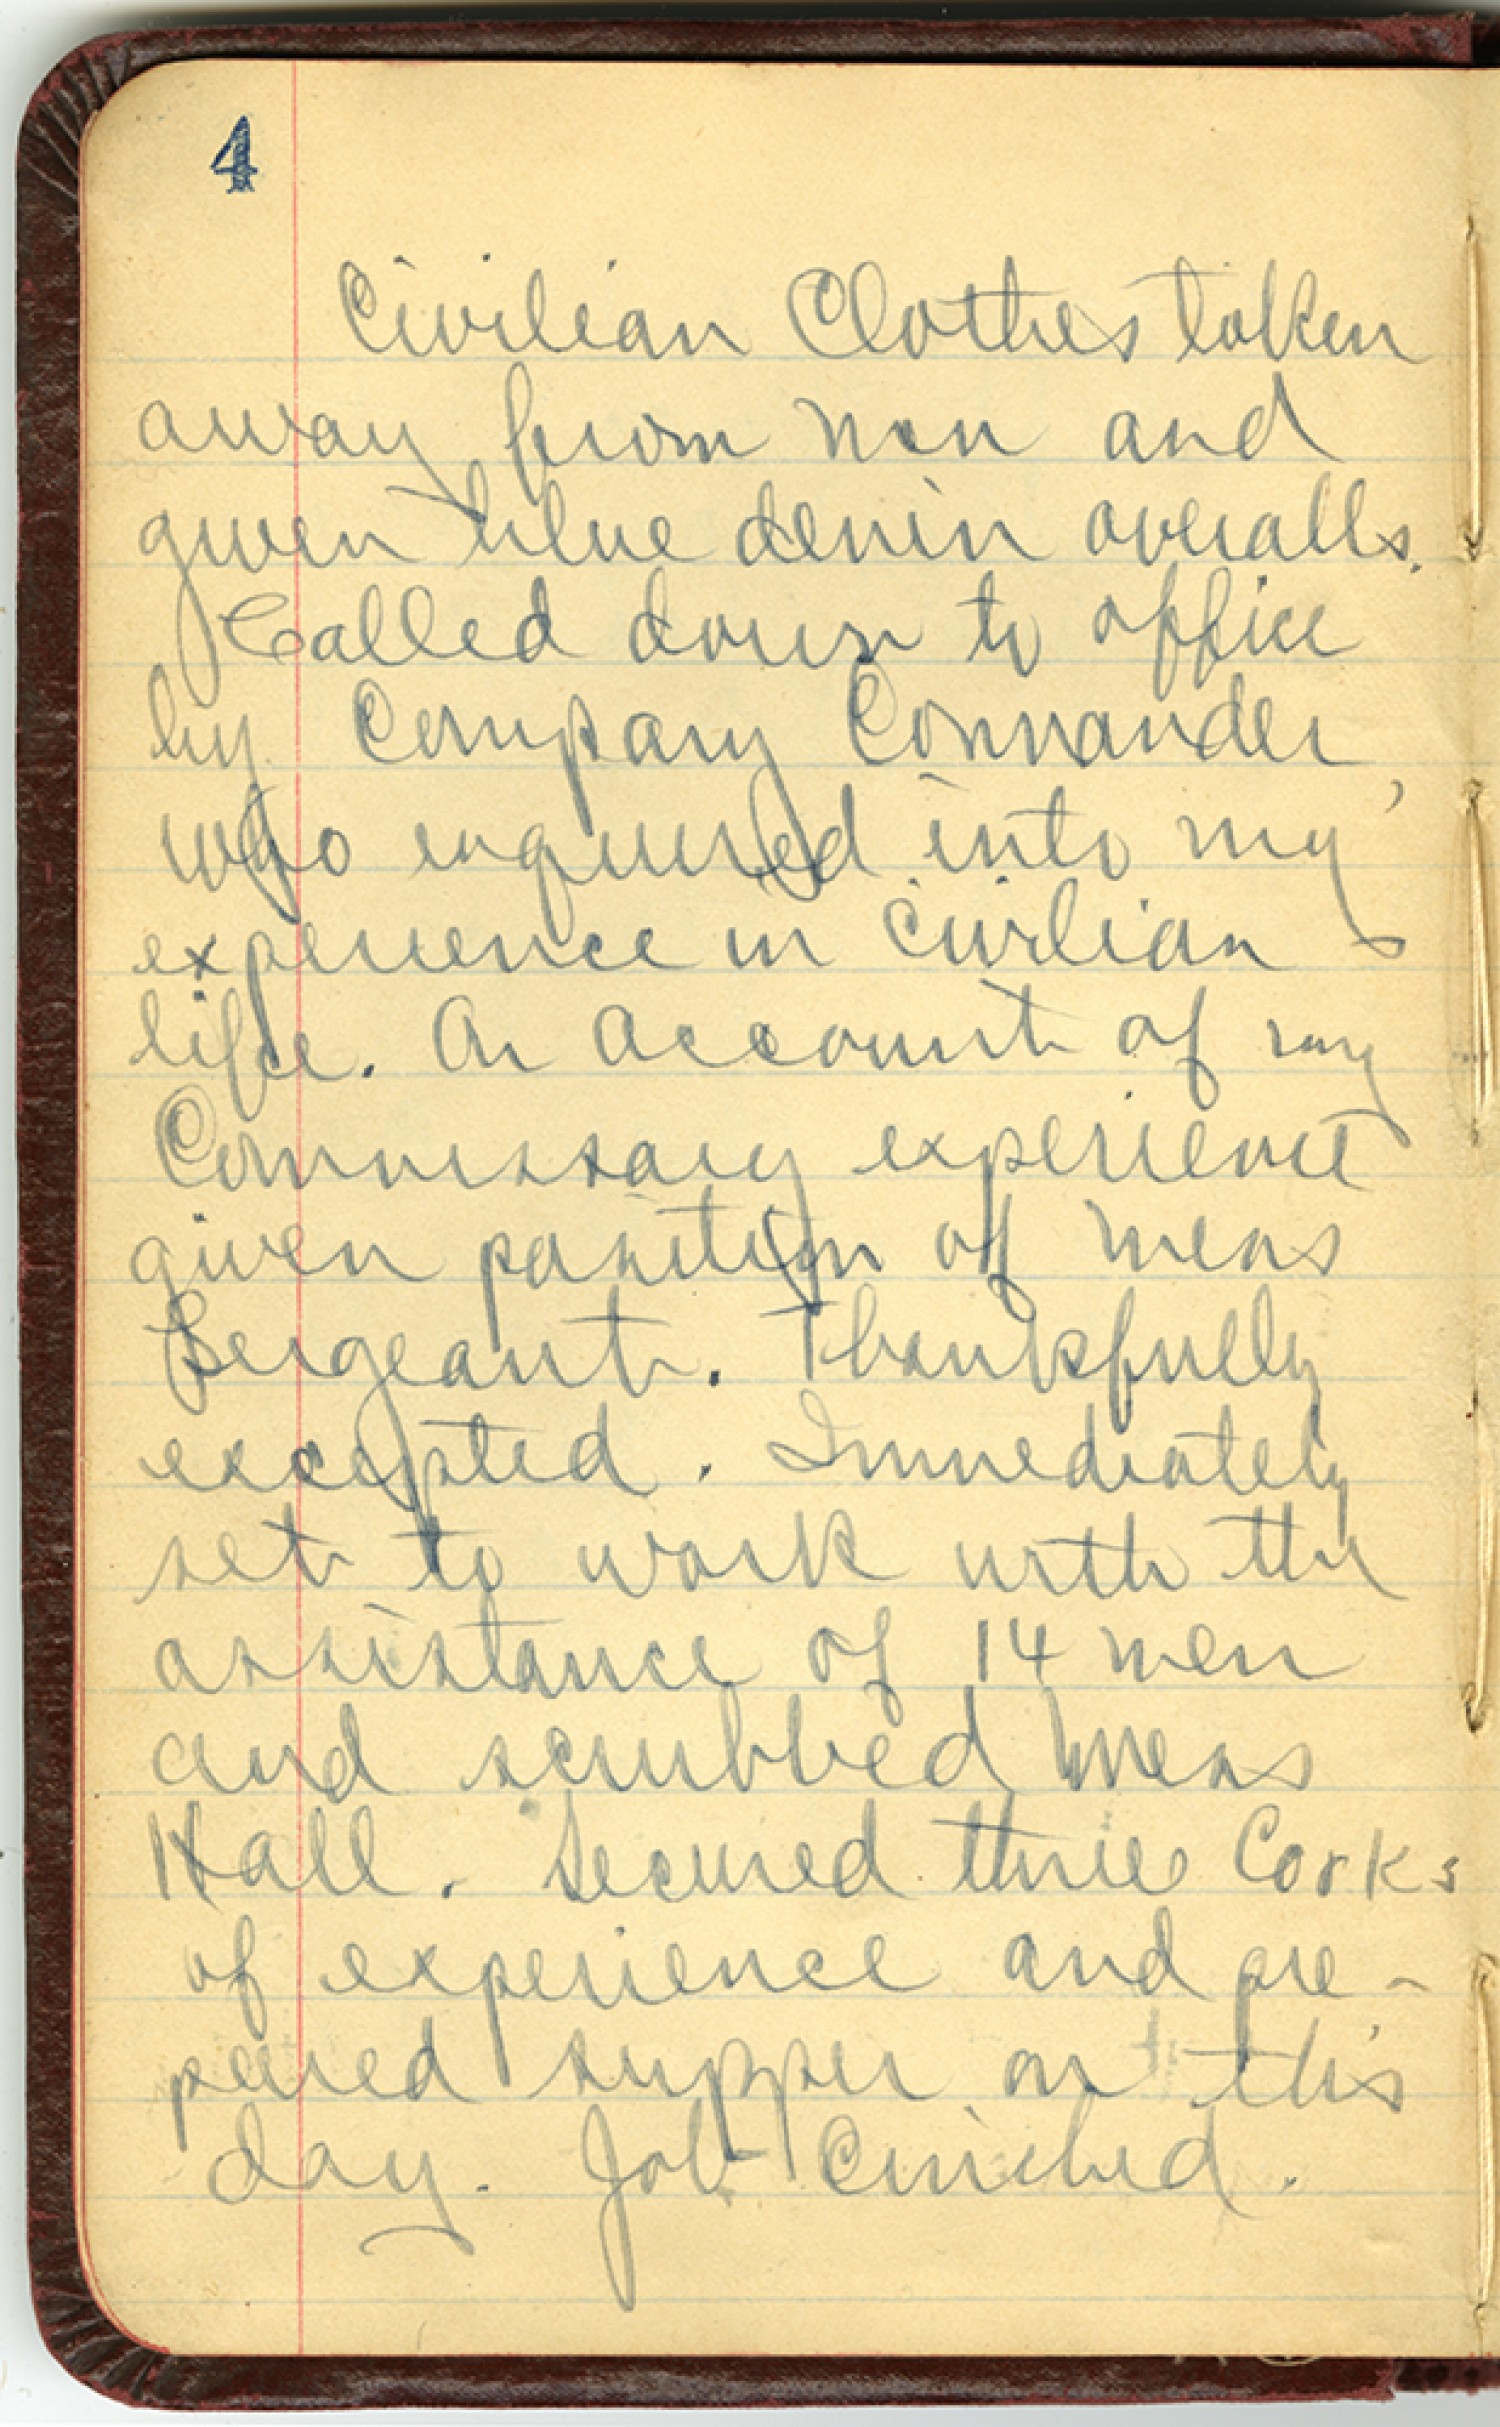 4
Civilian Clothes taken
away from men and
given blue denin overalls.
Called down to office
by Company Commander,
who enquired into my
experience in civilian
life. On account of my
Commissary experience
given position of mess
Sergeant. Thankfully
excepted. Immediately
set to work with the
assistance of 14 men
and scrubbed mess
Hall. Secured three Cooks
of experience and pre-
pared supper on this
day. Job Cinched.